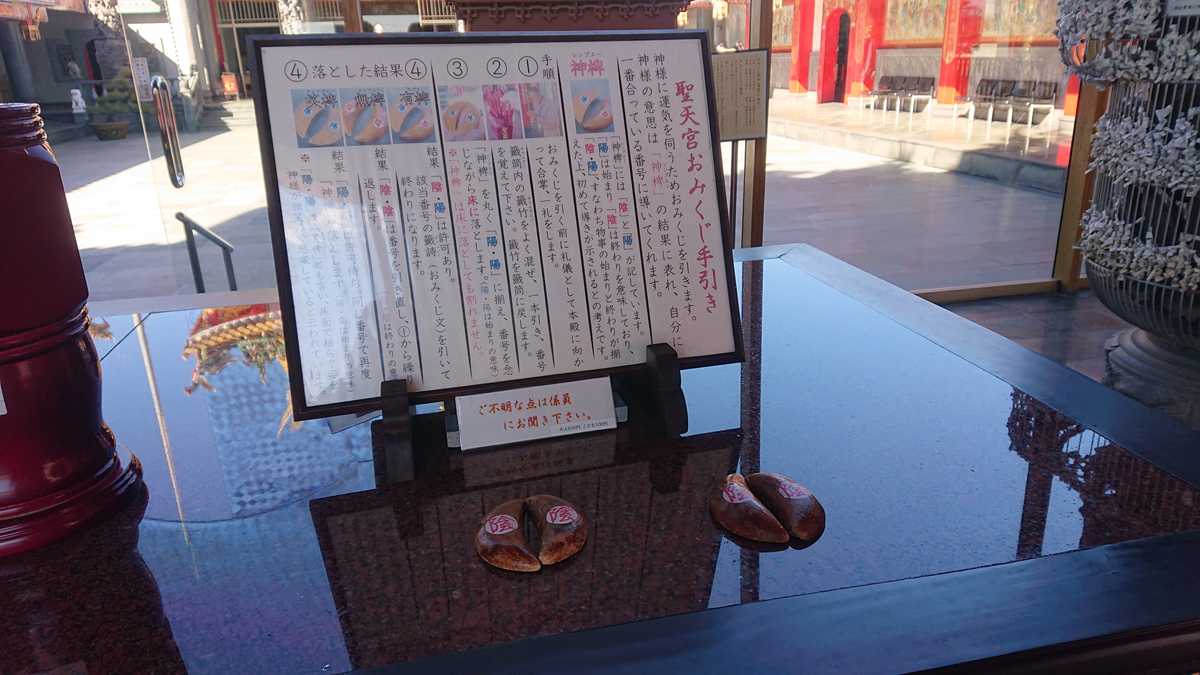 聖天宮おみくじ手引き
神様に運気を伺うためおみくじを引きます。
神様の意思は「神稗」の結果に表れ、自分に
一番合っている番号に導いてくれます。
シンプエー
神稗
「神稗」には「陰」と「陽」が記しています。
「陽」は始まり「陰」は終わりを意味しており、
「陰・陽」すなわち物事の始まりと終わりが揃
えた上、初めて導きが示されるとの考えです。
手順
①
おみくじを引く前に礼儀として本殿に向か
って合掌、一礼をします。
②
籤筒内の籤竹をよく混ぜ、一本引き、番号
を覚えて下さい。籤竹を籤筒に戻します。
③
「神稗」を丸く「陽・陽」に揃え、番号を念
じながら床に落とします。(陽・陽は始まりの意味)
※「神稗」は床に落としても割れません。
④落とした結果④
結果「陰・陽」は許可あり。
該当番号の籤詩(おみくじ文)を引いて
終わりになります。
結果「陰・陰」は
番号を引き直し、①から繰り
返します。
結果「陽・陽」は
ご不明な点は係員
にお聞き下さい。
陰
陰
陰
陰